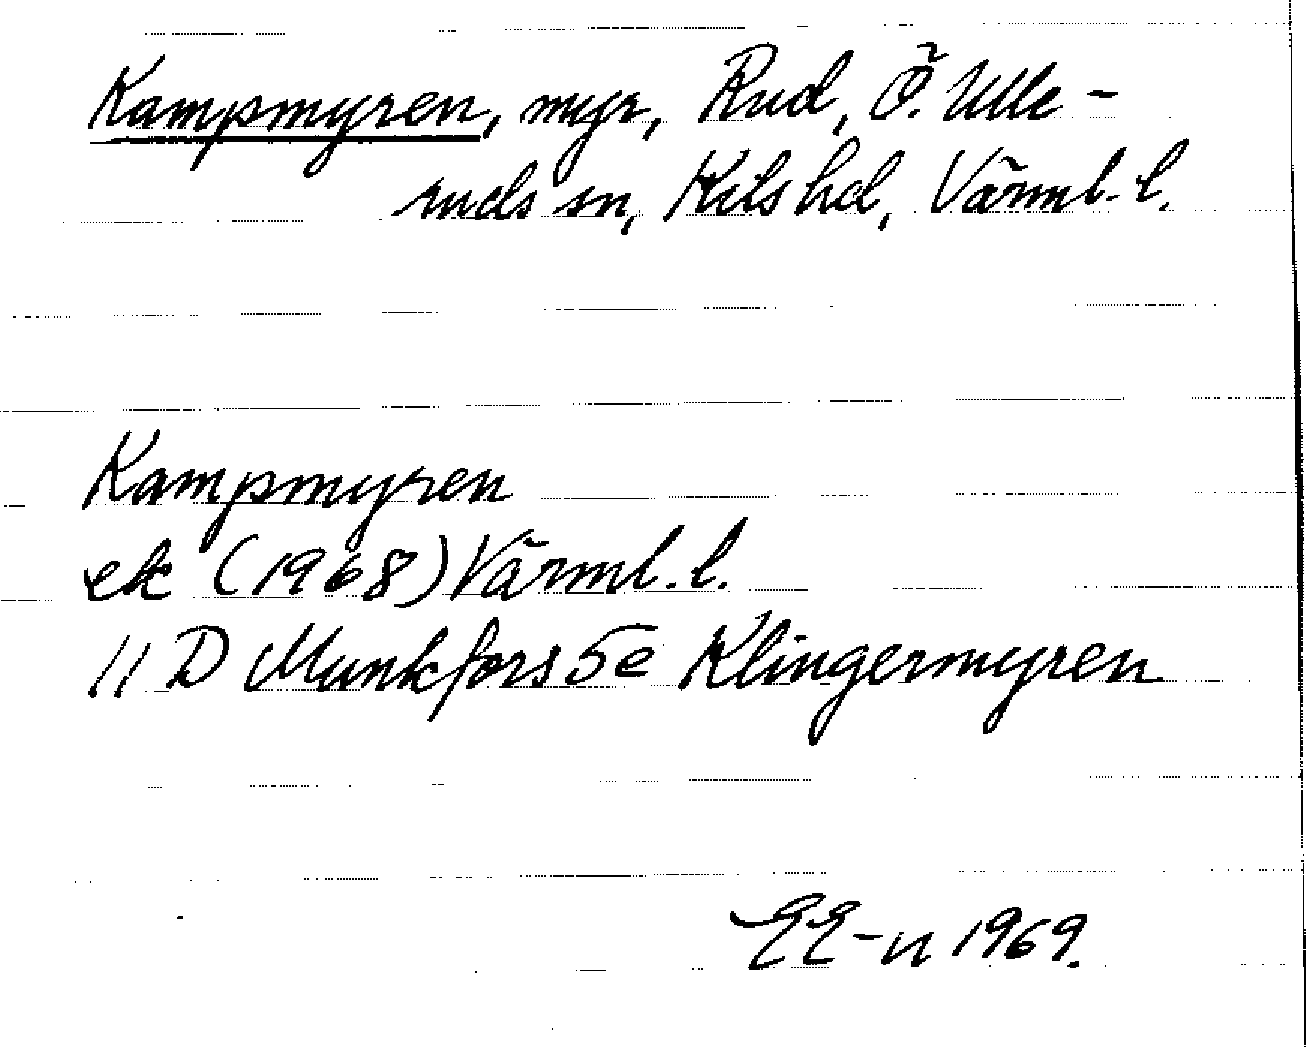 Kampmyren, myr, Rud, Ö. Ulle-
ruds sn, Kils hd, Värml. l.
Kampmyren
ek (1968) Värml. l.
11 D Munkfors 5e Klingermyren
EE-n 1969.